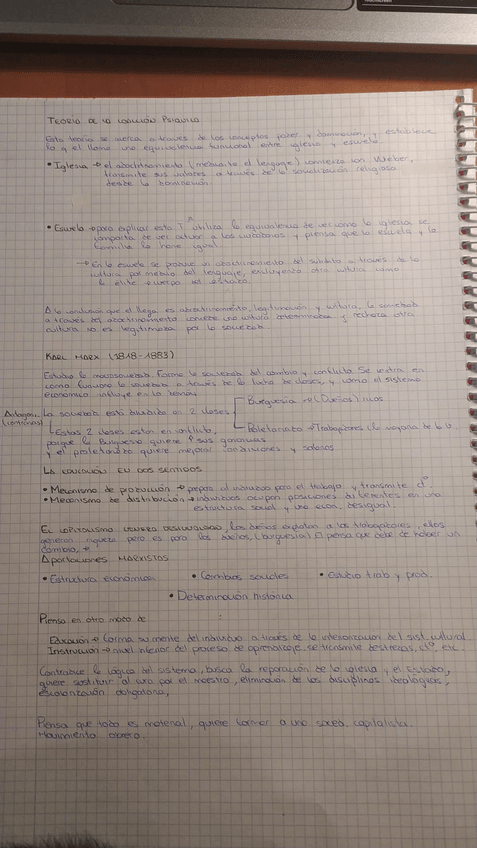 TEORIA DE LA COACCIÓN PSIQUICA
Esta teoria se versa a través de los conceptos poder y dominación, y establece
lo q el llama una equivalencia funcional entre iglesia y escuela.
• Iglesia → el adoctrinamiento (mediante el lenguaje) comienza con Weber,
transmite sus valores a través de la socialización religiosa
desde la dominación.
• Escuela → para explicar esta T utiliza la equivalencia de ver como la iglesia se
comporta de ver actuar a los ciudadanos y piensa que la escuela y la
familia lo hace igual.
→ En la escuela se produce un adoctrinamiento del subdito a través de la
cultura por medio del lenguaje, excluyendo otra cultura como
la élite o cuerpo del estado.
A la conclusión que el llega es adoctrinamiento, legitimación y cultura, la sociedad
a través del adoctrinamiento conoce una cultura determinada y rechaza otra
cultura no es legitimada por la sociedad.
KARL MARX (1818-1883)
Estudia la macrosociedad. Forma la sociedad del cambio y conflicto. Se centra en
como funciona la sociedad a través de la lucha de clases, y como el sistema
economico influye en la
Antagón. La sociedad esta dividida en 2 clases Burguesia → (Dueños) ricos
(contrarias) Proletariado → Trabajadores (la mayoria de la
Estas 2 clases estan en conflicto,
porque la Burguesia quiere ↑ sus ganancias
y el proletariado quiere mejorar condiciones y salarios
LA EDUCACIÓN EN DOS SENTIDOS
• Mecanismo de producción → prepara al individuo para el trabajo y transmite cº
• Mecanismo de distribución → individuos ocupan posiciones diferentes en una
estructura social y una econ. desigual.
EL CAPITALISMO GENERA DESIGUALDAD, los dueños explotan a los trabajadores, ellos
generan riqueza pero es para los dueños, (burguesia). El piensa que debe de haber un
cambio.
APORTACIONES MARXISTAS
• Estructura económica • Cambios sociales • Estudio trab y prod.
• Determinación historica
Piensa en otro modo de :
Educación → forma su mente del individuo a través de la interiorización del sist. cultural.
Instrucción → nivel inferior del proceso de aprendizaje se transmite destrezas, cº, etc.
Contradice la lógica del sistema, busca la separación de la iglesia y el Estado,
quiere sustituir al cura por el maestro, eliminación de las disciplinas ideológicas,
escolarización obligatoria,
Piensa que todo es material, quiere formar a una socied. capitalista.
Movimiento obrero.